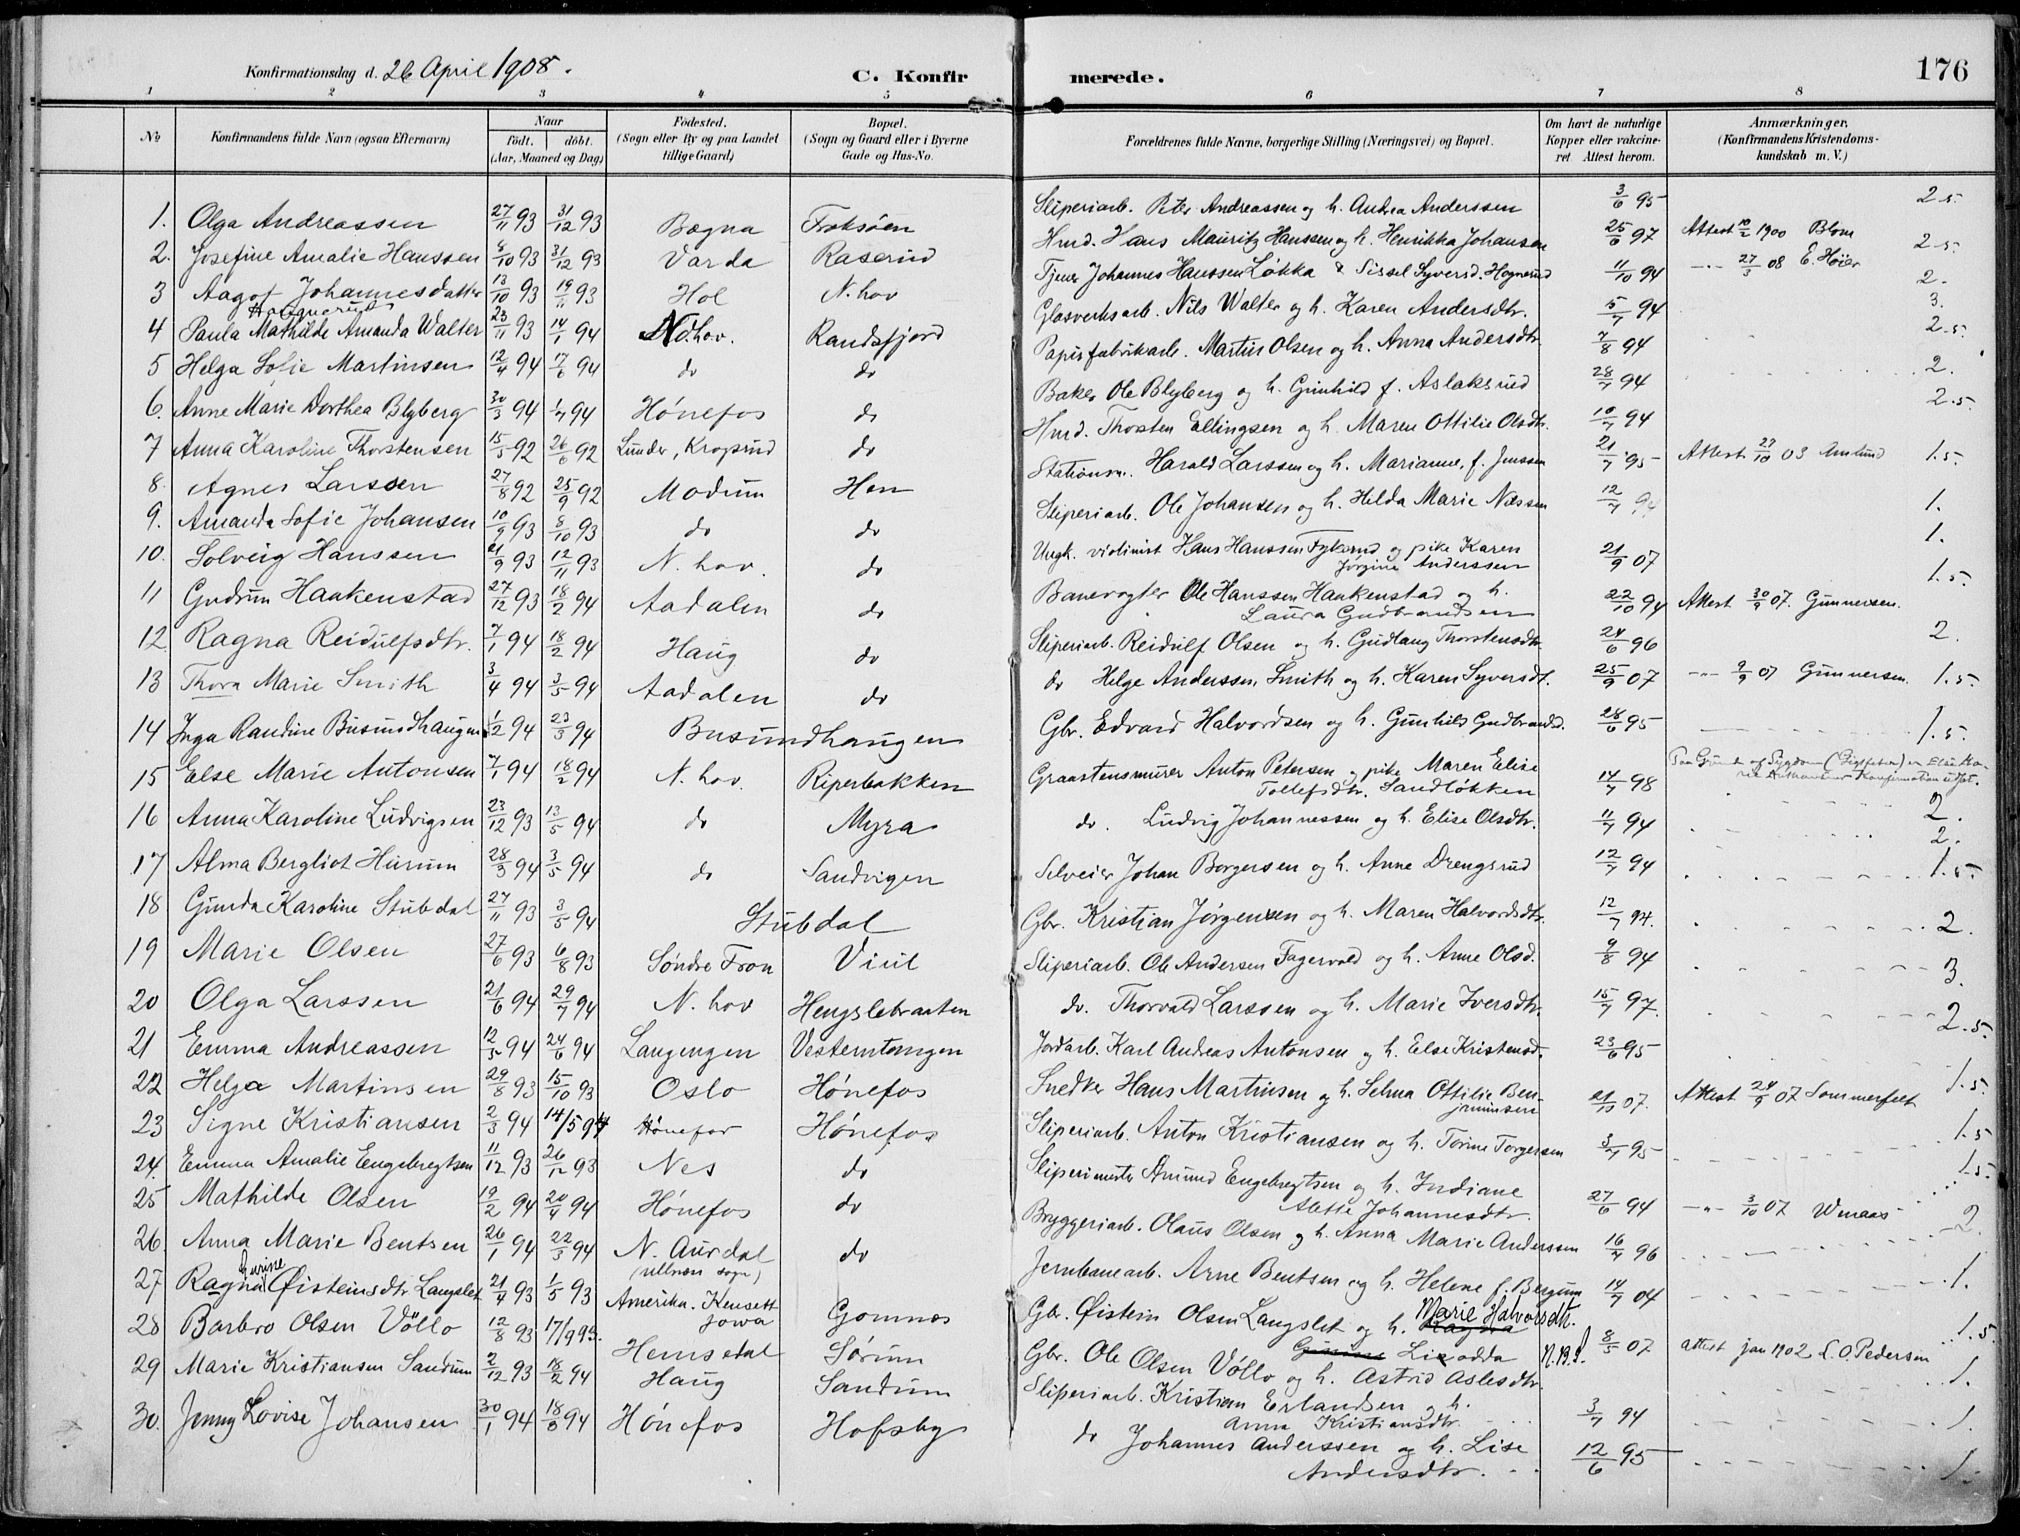 Konfirmationsdag d. 26 April 1908.
C. Konfirmerede.
176
1 2 3 4 5 6 7 8
No
Konfirmandens fulde Navn (ogsaa Efternavn)
Naar
født. døbt.
(Aar, Maaned og Dag)
Fødested.
(Sogn eller By og paa Landet
tillige Gaard)
Bopæl.
(Sogn og Gaard eller i Byerne
Gade og Hus-No.
Forældrenes fulde Navne, borgerlige Stilling (Næringsvei) og Bopæl.
Om havt de naturlige
Kopper eller vakcine-
ret Attest herom.
Anmærkninger.
(Konfirmandens Kristendoms-
kundskab m. V.)
1. Olga Andreassen 27/11 93 31/12 93 Bægna Froksøen Sliperiarb. Peter Andreassen og h. Andrea Anderssen 3/6 95 2.5.
2. Josefine Amalie Hanssen 8/10 93 31/12 93 Varda Raserud Hmd. Hans Mauritz Hanssen og h. Henrikka Johansen 25/6 97 Attest 10/2 1900 Blom 2.5.
3 Aagot Johannesdatter 13/10 93 19/11 93 Hol N. hov Tjener Johannes Hanssen Løkka & Sissel Syversd. Hognerud 11/10 94 -"- 27/3 08 E. Høier 2.
Haagnerud
4 Paula Mathilde Amanda Walter 23/11 93 14/1 94 Ndhov. Randsfjord Glasverksarb. Nils Walter og h. Karen Andersdtr. 5/7 94 3.
5 Helga Sofie Martinsen 12/4 94 17/6 94 do do Papirfabrikarb. Martin Olsen og h. Anna Andersdtr 7/8 94 2.5.
6. Anne Marie Dorthea Blyberg 30/3 94 1/7 94 Hønefos do Baker Ole Blyberg og h. Gunhild f. Aslaksrud 28/7 94 2.
7 Anna Karoline Thorstensen 15/5 92 26/6 92 Lunder, Kropsrud do Hmd. Thorsten Ellingsen og h. Maren Ottilie Olsdtr. 10/7 94 2.5.
8. Agnes Larssen 27/8 92 25/9 92 Modum Hen Stationsm. Harald Larssen og h. Marianne, f. Jenssen 21/7 95 Attest 27/10 03 Amlund 1.5.
9. Amanda Sofie Johansen 10/9 93 8/10 93 do do Sliperiarb. Ole Johansen og h. Helda Marie Næssen 12/7 94 1.
10. Solveig Hanssen 21/9 93 12/11 93 N. hov. do Ungk. violinist Hans Hanssen Fykerud og pike Karen 21/9 07 1.
Jørgine Anderssen
11 Gudrun Haakenstad 27/12 93 18/2 94 Aadalen do Banevogter Ole Hanssen Haakenstad og h. 22/10 94 Attest 30/9 07. Gunnersen. 1.5.
Laura Gudbrandsen
12 Ragna Reidulfsdtr. 7/1 94 18/2 94 Haug do Sliperiarb. Reidulf Olsen og h. Gudlaug Thorstensdtr 24/6 96 2.
13 Thora Marie Smith 3/4 94 3/5 94 Aadalen do do Helge Anderssen Smith og h. Karen Syversdt. 25/9 07 -"- 9/9 07 Gunnersen. 1.5.
14 Inga Randine Busundhaugen 1/2 94 23/3 94 Busundhaugen Gbr. Edvard Halvordsen og h. Gunhild Gudbrandsd. 28/6 95 1.5.
15 Else Marie Antonsen 7/1 94 18/2 94 N. hov. Riperbakken Graastensmurer Anton Petersen og pike Maren Elise 14/7 98 Paa Grund af Sygdom (Gigfeber) er Else Ma-
Tollefsdtr. Sandløkken rie Antonsens Konfirmation udsat.
16 Anna Karoline Ludvigsen 23/12 93 13/5 94 do Myra do. Ludvig Johannessen og h. Elise Olsdtr. 11/7 94 2.
17 Alma Bergliot Hurum 28/3 94 3/5 94 do Sandvigen Selveier Johan Borgersen og h. Anne Drengsrud 12/7 94 2.
18 Gunda Karoline Stubdal 27/11 93 3/5 94 Stubdal Gbr. Kristian Jørgensen og h. Maren Halvordsdtr. 12/7 94. 1.5.
19 Marie Olsen 27/6 93 6/8 93 Søndre Fron Viul Sliperiarb. Ole Andersen Fagervold og h. Anne Olsd. 9/8 94 2.
20 Olga Larssen 21/6 94 29/7 94 N. hov Hengslebraaten do. Thorvald Larssen og h. Marie Iversdtr 15/7 97. 3.
21 Emma Andreassen 12/5 94 24/6 94 Langengen Vesterntangen Jordarb. Karl Andreas Antonsen og h. Else Kristensd. 23/6 95 2.5.
22 Helga Martinsen 29/8 93 15/10 93 Oslo Hønefos Snedker Hans Martinsen og h. Selma Ottilie Ben- 21/10 07. Attest 24/9 07 Sommerfelt 1.5.
jaminsen
23 Signe Kristiansen 2/3 94 14/5 94 Hønefos Hønefos Sliperiarb. Anton Kristiansen og h. Torine Torgersen 3/7 95 1.5.
24. Emma Amalie Engebregtsen 11/12 93 26/12 93 Nes do Sliperimester Amund Engebregtsen og h. Indiane 27/6 94 -"- 3/10 07 1.5.
Alette Johannesdtr.
25 Mathilde Olsen 19/2 94 20/4 94 Hønefos do Bryggeriarb. Olaus Olsen og h. Anna Marie Anderssen 16/7 96 2.
26. Anna Marie Bentsen 26/1 94 22/3 94 N. Aurdal do Jernbanearb. Arne Bentsen og h. Helene f. Bergum 14/7 04 1.
(Ulnæs sogn)
27 Ragna Gurine Øisteinsdtr Langslet 21/4 93 1/5 93 Amerika. Kensett Gomnæs Gbr. Øistein Olsen Langslet og h. Ragna Marie Halvorsdt. 8/5 07 attest jan 1902 L. O. Pedersen 1.5
Jowa Lixodda N.B.
28 Barbro Olsen Völlo 12/8 93 17/9 93. Hemsedal Sørum Gbr. Ole Olsen Völlo og h. Astrid Aslesdtr. 1.
29 Marie Kristiansen Sandum 2/12 93 18/2 94 Haug Sandum Sliperiarb. Kristian Erlandsen og h. 3/7 94 1.
Anna Kristiansdtr.
30. Jenny Lovise Johansen 30/1 94 18/3 94 Hønefos Hofsby do Johannes Anderssen og h. Lise 12/6 95 1.
Andersdtr.